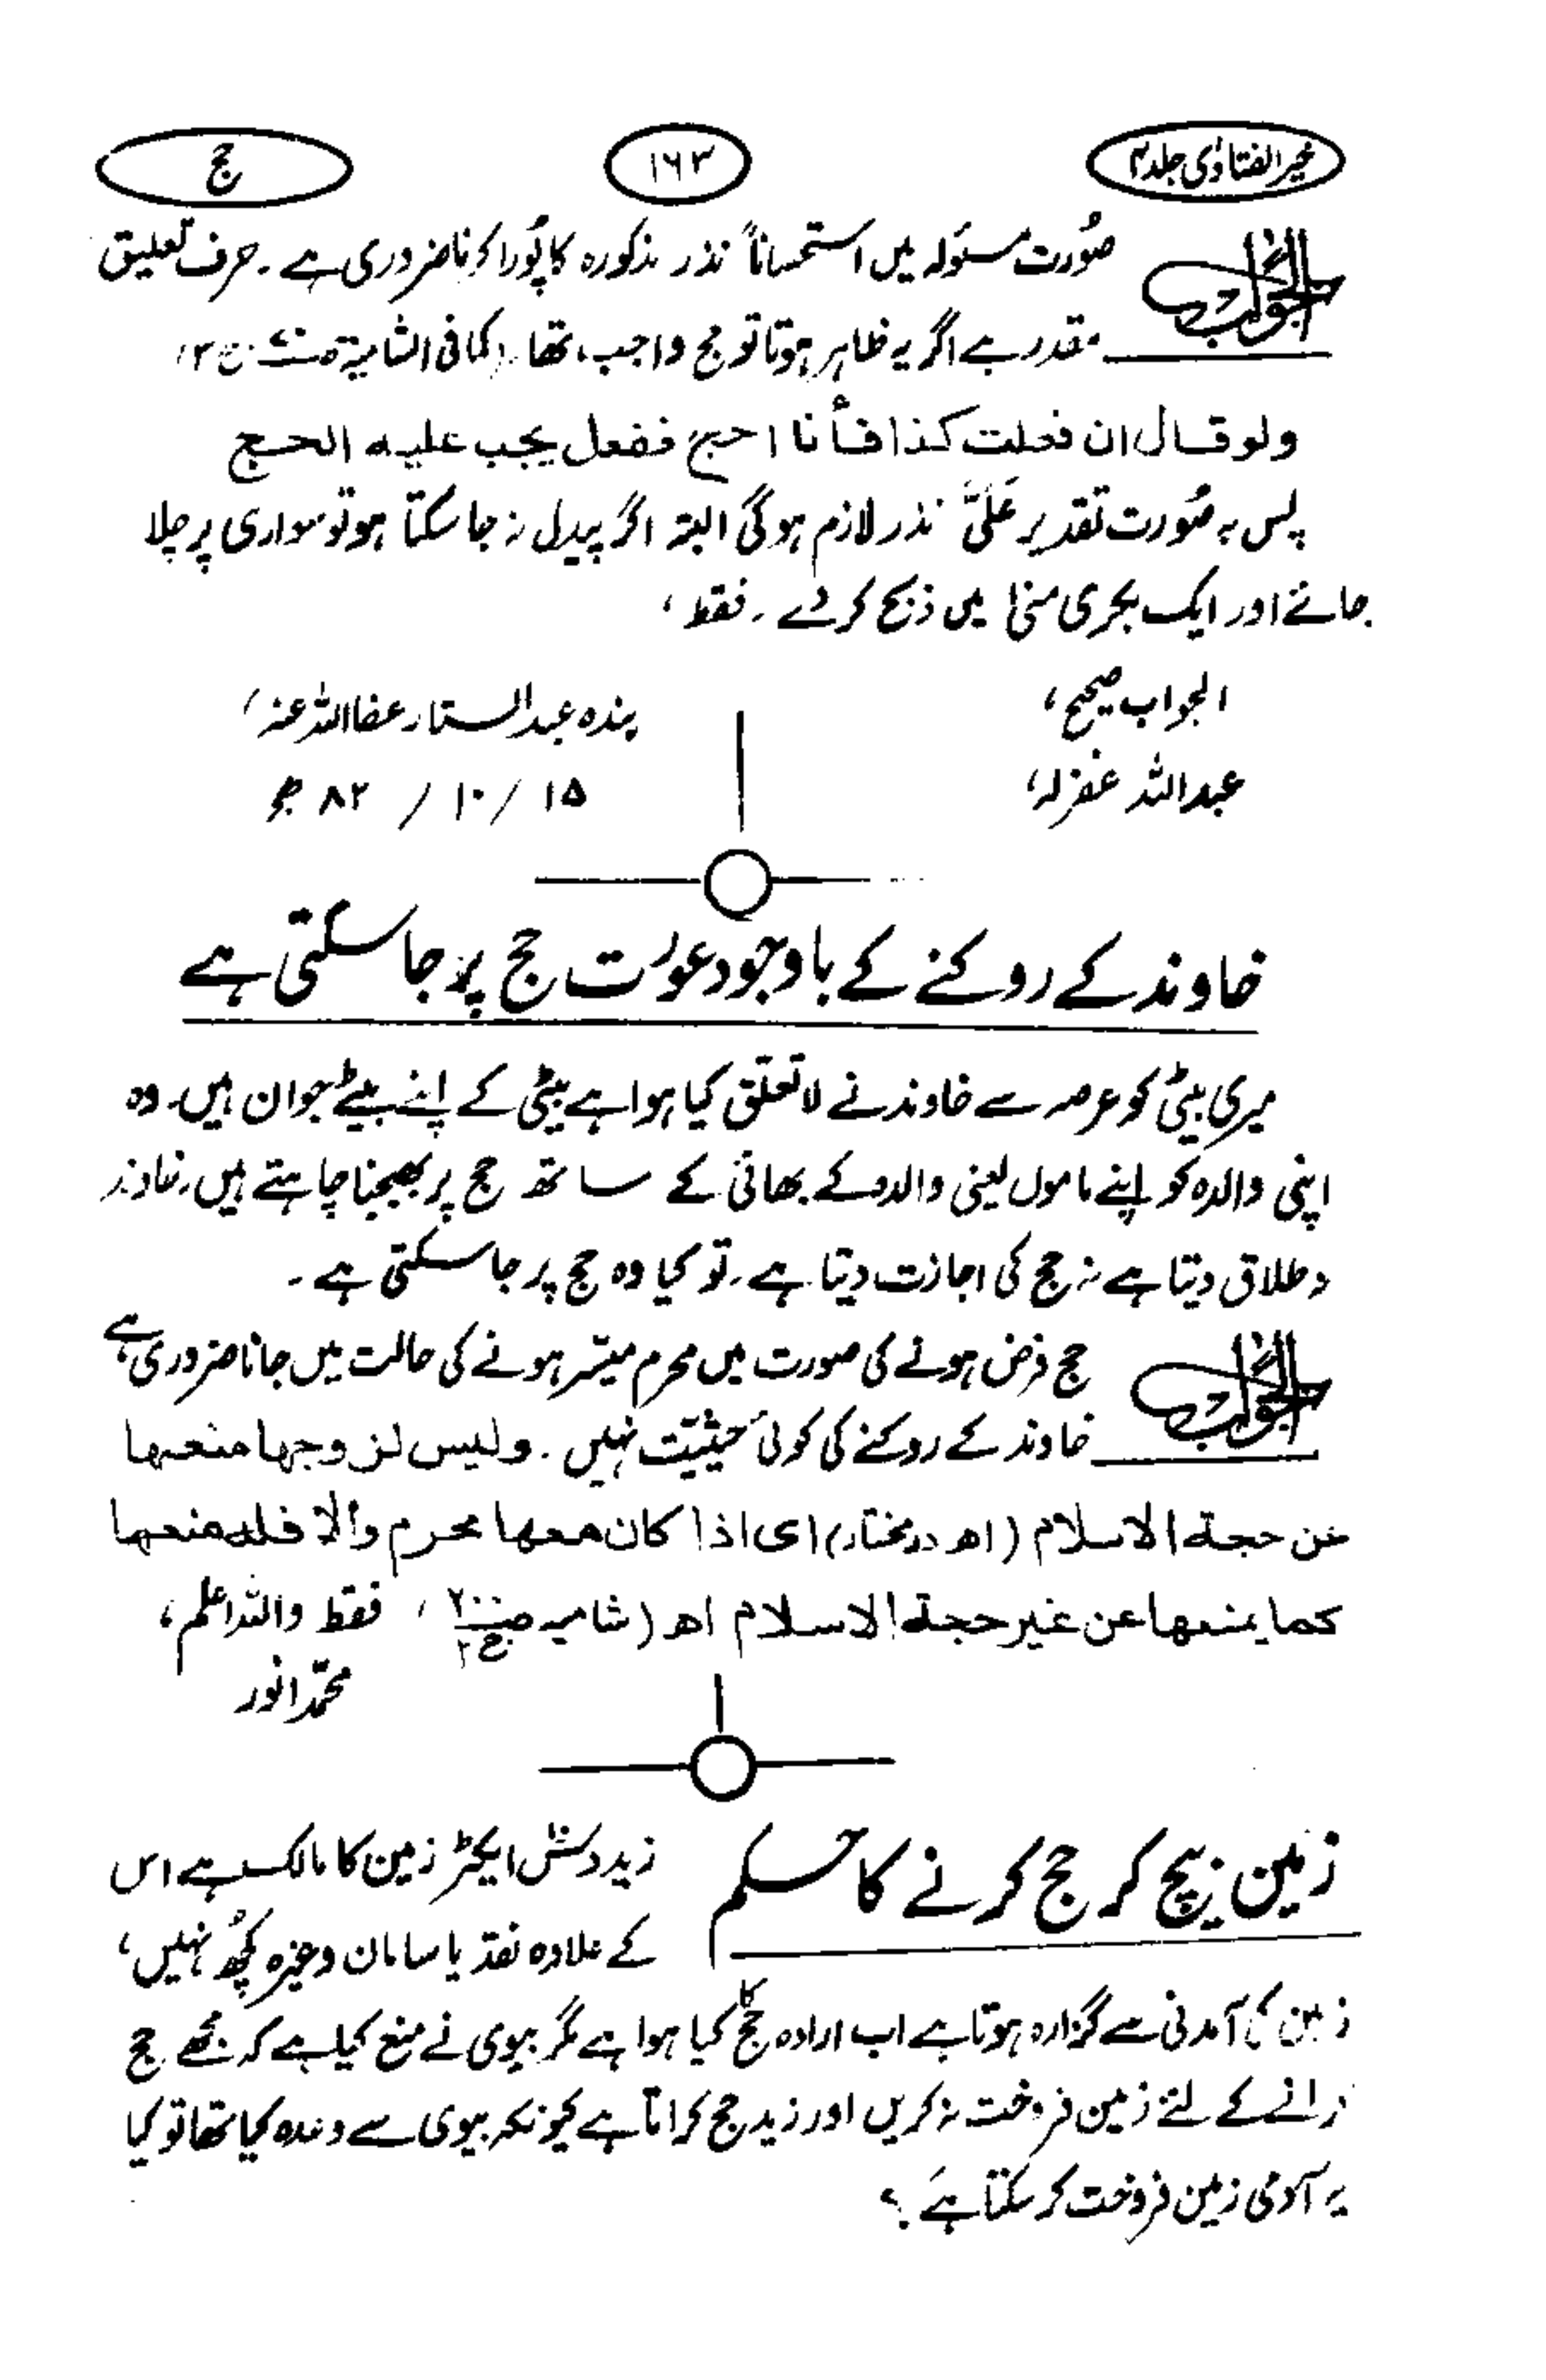 خیر الفتاوٰی جلد ۴
۱۶۳
حج
الجواب
صُورت مسئولہ میں استحساناً نذر مذکورہ کا پُورا کرنا ضروری ہے۔ حرف تعلیق
مقدر ہے اگر یہ ظاہر ہوتا تو حج واجب تھا۔ (کما فی الشامیۃ ج ۳)
ولو قال ان فعلت کذا فأنا احج ففعل یجب علیه الحج
پس بہ صُورت تقدیر عَلَیَّ نذر لازم ہوگی البتہ اگر پیدل نہ جا سکتا ہو تو سواری پر چلا
جائے اور ایک بکری منیٰ میں ذبح کر دے۔ فقط،
الجواب صحیح،
بندہ عبدالستار عفااللہ عنہ،
عبداللہ غفرلہ،
۱۵ / ۱۰ / ۸۲ ھ
خاوند کے روکنے کے باوجود عورت حج پر جا سکتی ہے
میری بیٹی کو عرصہ سے خاوند نے لاتعلق کیا ہوا ہے بیٹی کے اپنے بیٹے جوان ہیں۔ وہ
اپنی والدہ کو اپنے ماموں یعنی والدہ کے بھائی کے ساتھ حج پر بھیجنا چاہتے ہیں۔ خاوند
نہ طلاق دیتا ہے نہ حج کی اجازت دیتا ہے۔ تو کیا وہ حج پر جا سکتی ہے۔
الجواب
حج فرض ہونے کی صورت میں محرم میسّر ہونے کی حالت میں جانا ضروری ہے
خاوند کے روکنے کی کوئی حَیثیّت نہیں۔ ولیس لزوجها منعها
عن حجة الاسلام (اھ درمختار) ای اذا کان معها محرم والا فله منعها
کما یمنعها عن غیر حجة الاسلام اھ (شامیہ ص۲۰۰ ج۲)، فقط واللہ اعلم،
محمّد انور
زمین بیچ کر حج کرنے کا حکم
زید دسؔ ایکڑ زمین کا مالک ہے اس
کے علاوہ نقد یا سامان وغیرہ کچھُ نہیں،
زمین کی آمدنی سے گزارہ ہوتا ہے اب ارادہ حج کا کیا ہوا ہے مگر بیوی نے منع کیا ہے کہ مجھے حج
کرانے کے لئے زمین فروخت نہ کریں اور زید حج کراتا ہے کیونکہ بیوی سے وعدہ کیا تھا تو کیا
یہ آدمی زمین فروخت کر سکتا ہے؟